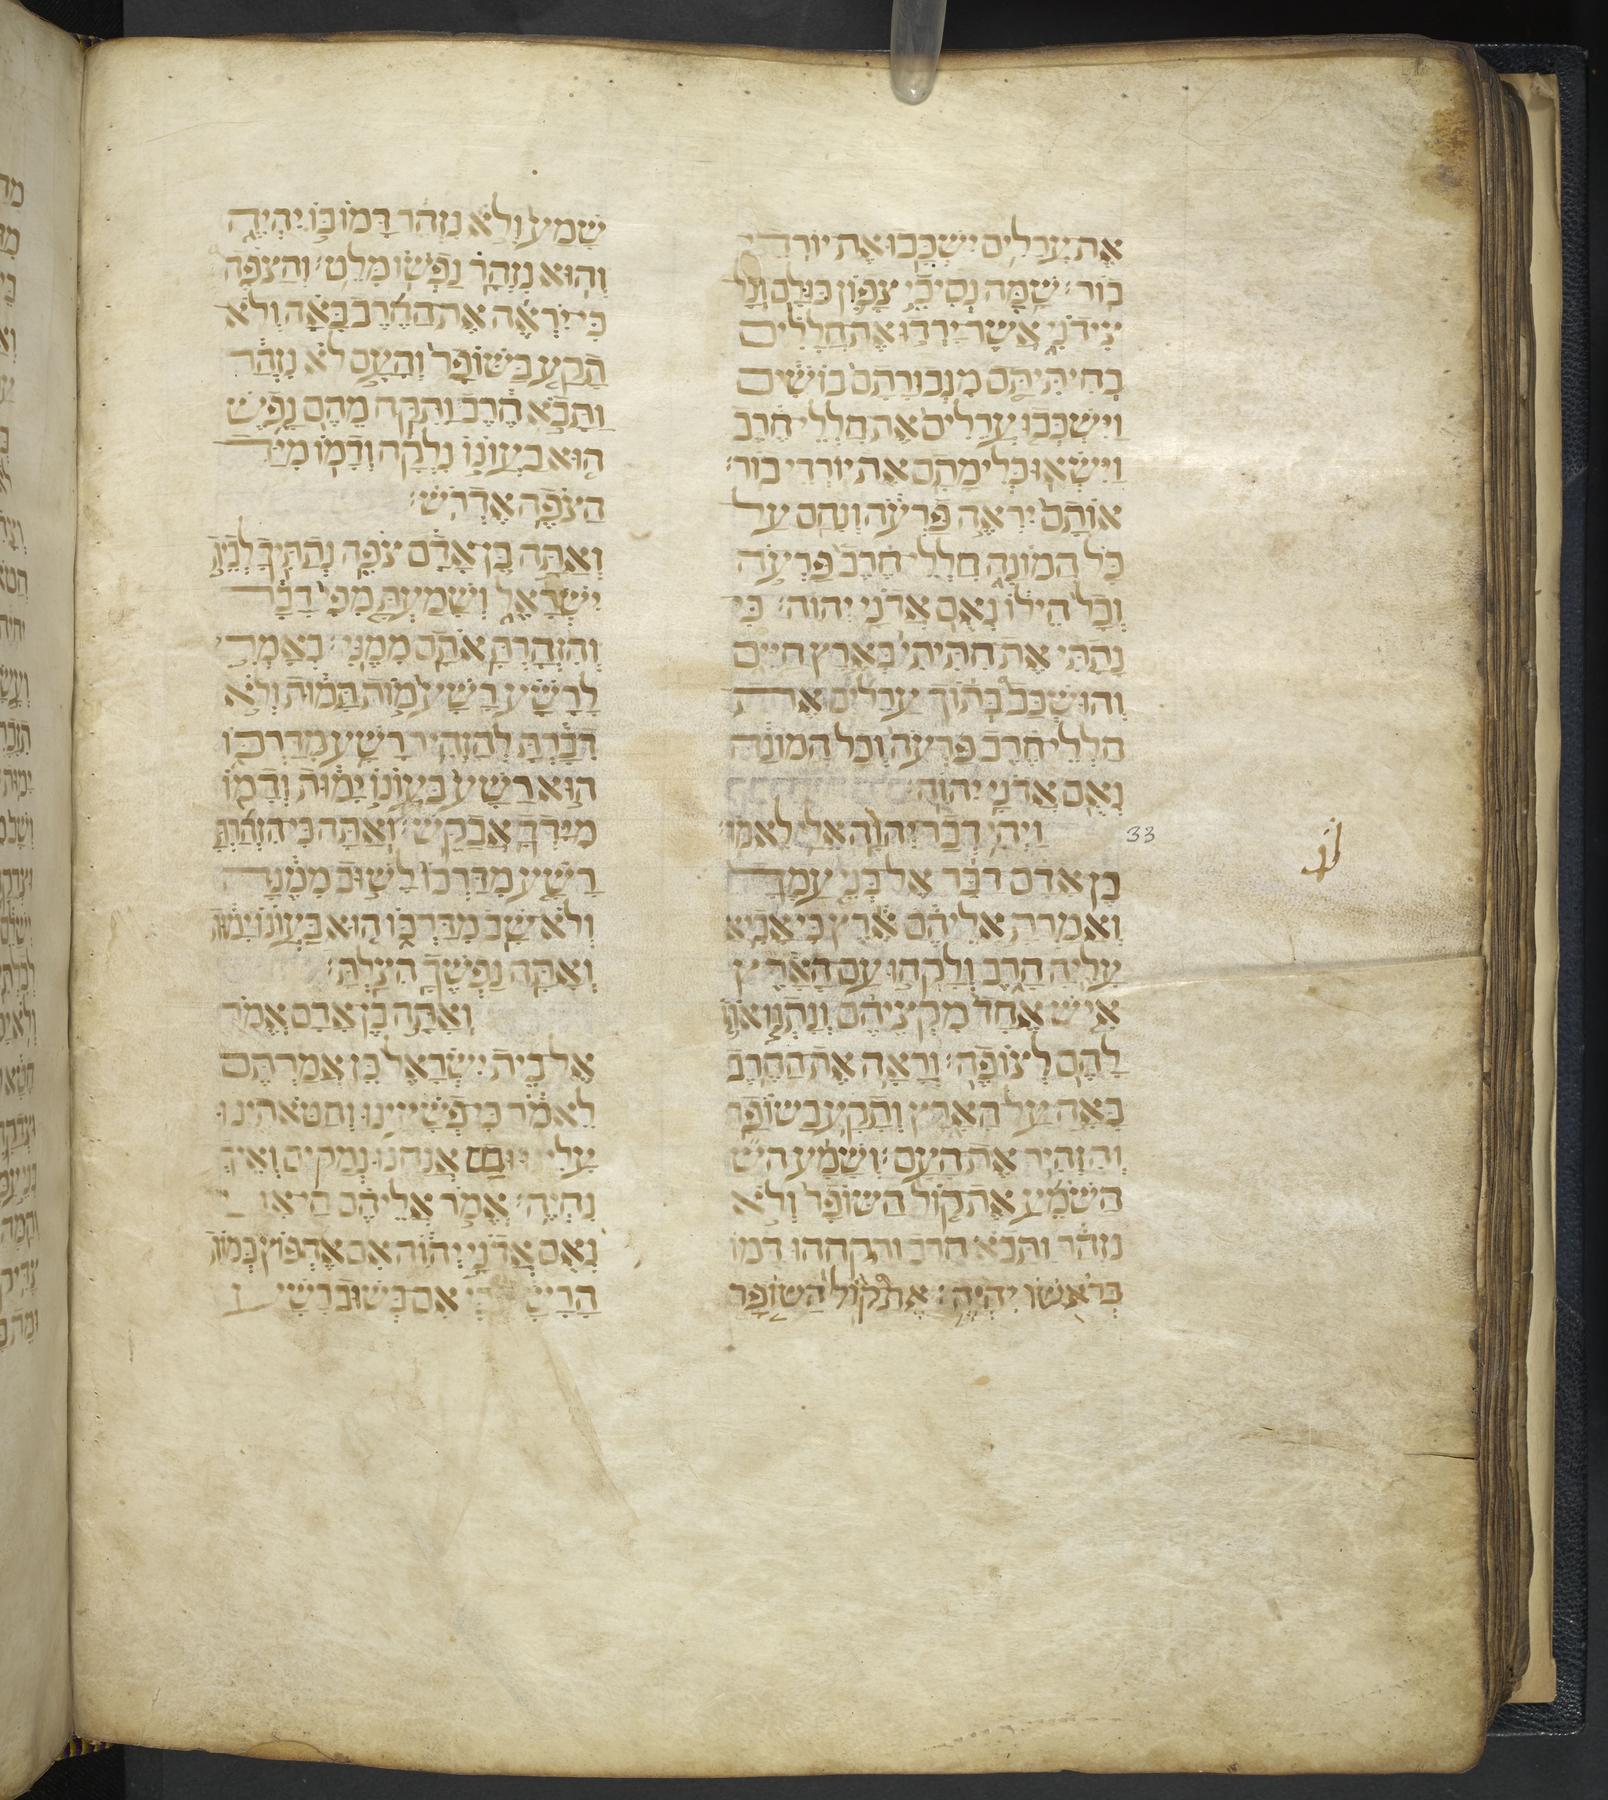 את ערלים ישכבו את יורדי
בור׃ שמה נסיכי צפון כולם וכל
צידני אשר ירדו את חללים
בחיתיתם מגבורתם בושים
וישכבו ערלים את חללי חרב
וישאו כלימתם את יורדי בור׃
אותם יראה פרעה ונחם על
כל המונה חללי חרב פרעה
וכל חילו נאם אדני יהוה׃ כי
נתתי את חתיתי בארץ חיים
והושכב בתוך ערלים את
חללי חרב פרעה וכל המונה
נאם אדני יהוה׃
ויהי דבר יהוה אלי לאמר׃
33
בן אדם דבר אל בני עמך
ואמרת אליהם ארץ כי אביא
עליה חרב ולקחו עם הארץ
איש אחד מקציהם ונתנו אותו
להם לצופה׃ וראה את החרב
באה על הארץ ותקע בשופר
והזהיר את העם׃ ושמע הש
השמע את קול השופר ולא
נזהר ותבא חרב ותקחהו דמו
בראשו יהיה׃ את קול השופר
שמע ולא נזהר דמו בו יהיה
והוא נזהר נפשו מלט׃ והצפה
כי יראה את החרב באה ולא
תקע בשופר והעם לא נזהר
ותבא חרב ותקח מהם נפש
הוא בעונו נלקח ודמו מיד
הצפה אדרש׃
ואתה בן אדם צפה נתתיך לבית
ישראל ושמעת מפי דבר
והזהרת אתם ממני׃ באמרי
לרשע רשע מות תמות ולא
דברת להזהיר רשע מדרכו
הוא רשע בעונו ימות ודמו
מידך אבקש׃ ואתה כי הזהרת
רשע מדרכו לשוב ממנה
ולא שב מדרכו הוא בעונו ימות
ואתה נפשך הצלת׃
ואתה בן אדם אמר
אל בית ישראל כן אמרתם
לאמר כי פשיעינו וחטאתינו
עלינו ובם אנחנו נמקים ואיך
נחיה׃ אמר אליהם חי אני
נאם אדני יהוה אם אחפוץ במות
הרשע כי אם בשוב רשע